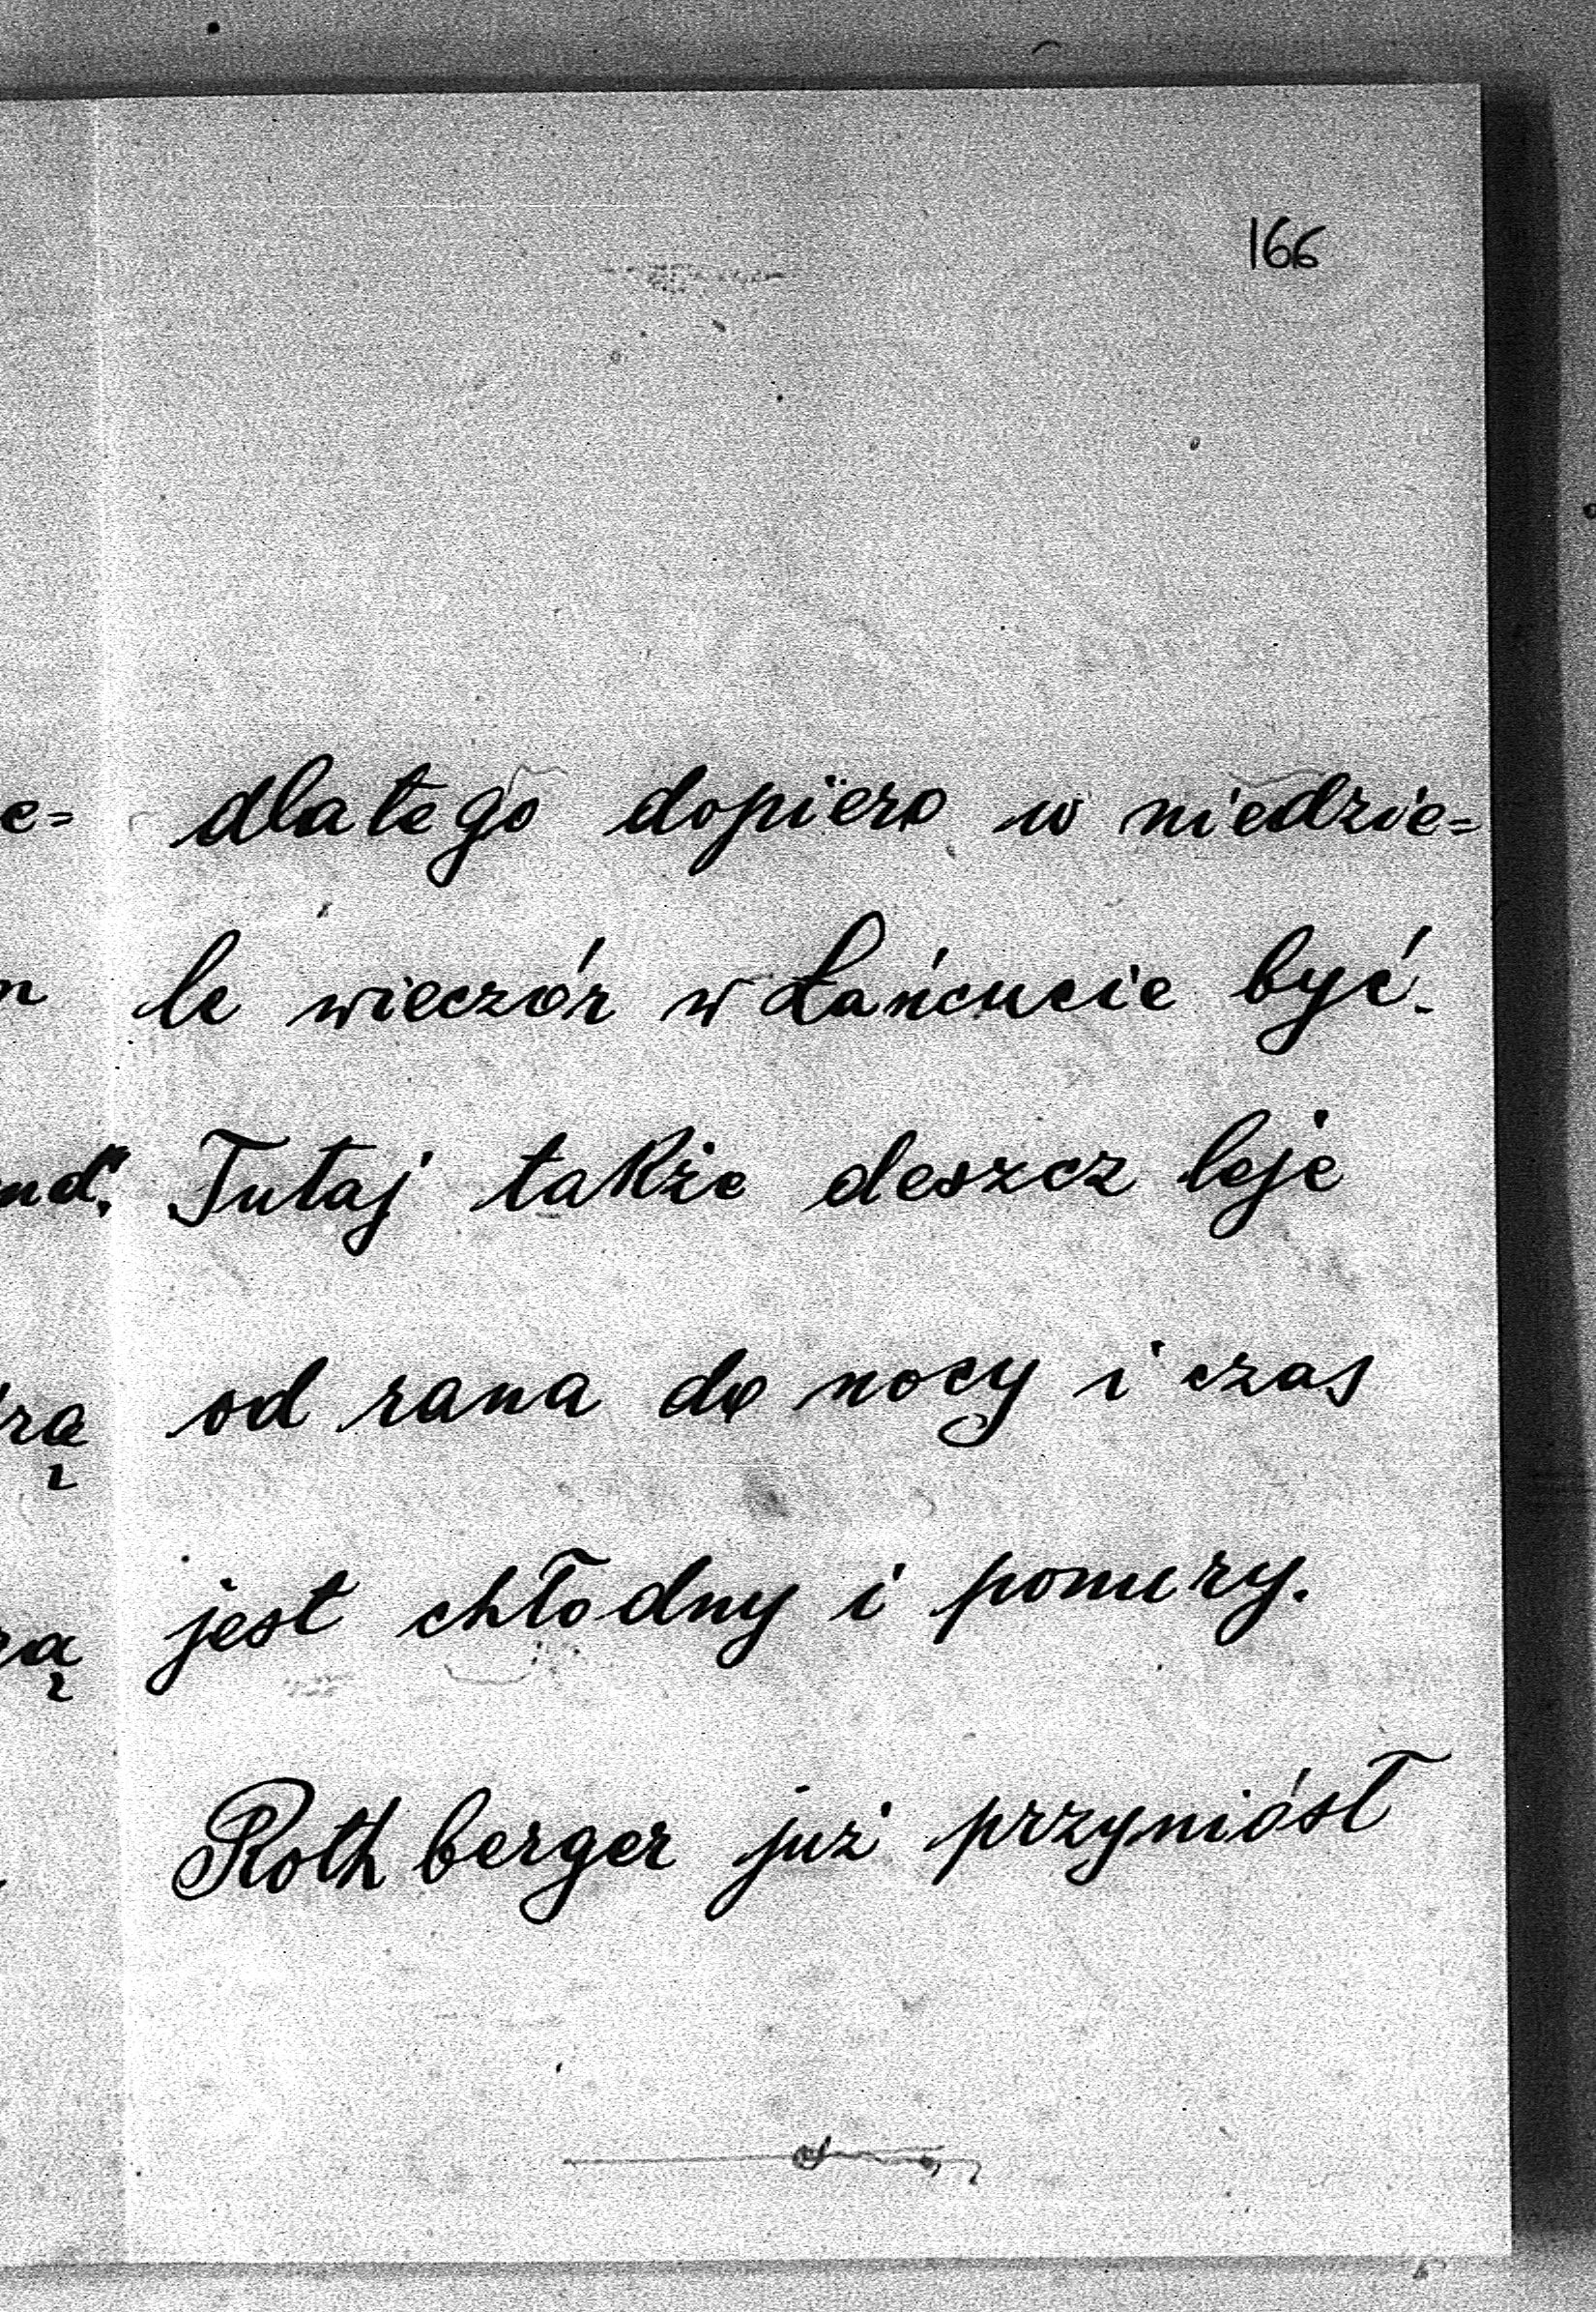 166
dlatego dopiero w niedzie=
le wieczór w Łańcucie być.
Tutaj także deszcz leje
od rana do nocy i czas
jest chłodny i ponury.
Rothberger już przyniósł